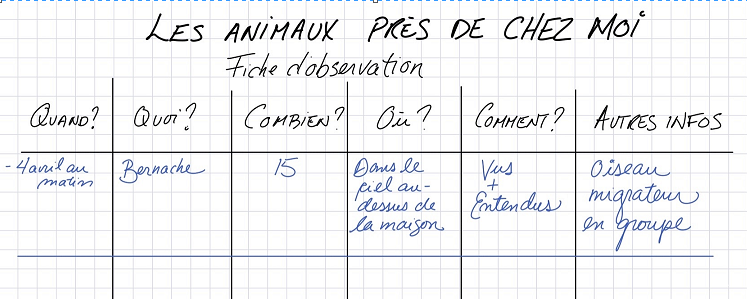 LES ANIMAUX PRÈS DE CHEZ MOI
Fiche d'observation
QUAND? QUOI? COMBIEN? OÙ? COMMENT? AUTRES INFOS
- 4 avril au matin
Bernache
15
Dans le
ciel au-
dessus de
la maison
Vus
+
Entendus
Oiseau
migrateur
en groupe